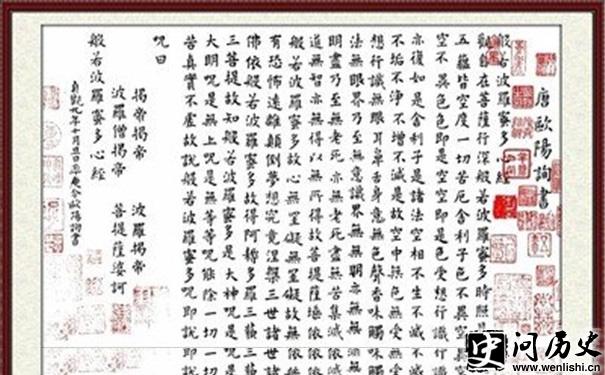 唐歐陽詢書
般若波羅蜜多心經
觀自在菩薩行深般若波羅蜜多時照見
五蘊皆空度一切苦厄舍利子色不異空異空
空不異色色即是空空即是色受想行識行識
亦復如是舍利子是諸法空相不生不滅不滅
不垢不淨不增不減是故空中無色無受無受
想行識無眼耳鼻舌身意無色聲香味觸味觸
法無眼界乃至無意識界無無明亦無無
明盡乃至無老死亦無老死盡無苦集滅集滅
道無智亦無得以無所得故菩提薩埵依埵依
般若波羅蜜多故心無罣礙無罣礙故無故無
有恐怖遠離顛倒夢想究竟涅槃三世諸世諸
佛依般若波羅蜜多故得阿耨多羅三藐三藐
三菩提故知般若波羅蜜多是大神呪是呪是
大明呪是無上呪是無等等呪能除一切一切
苦真實不虛故說般若波羅蜜多呪即說即說
呪曰
揭帝揭帝 波羅揭帝
波羅僧揭帝 菩提薩婆訶
般若波羅蜜多心經
貞觀九年十月旦日率更令歐陽詢書
问历史
www.wenlishi.cn